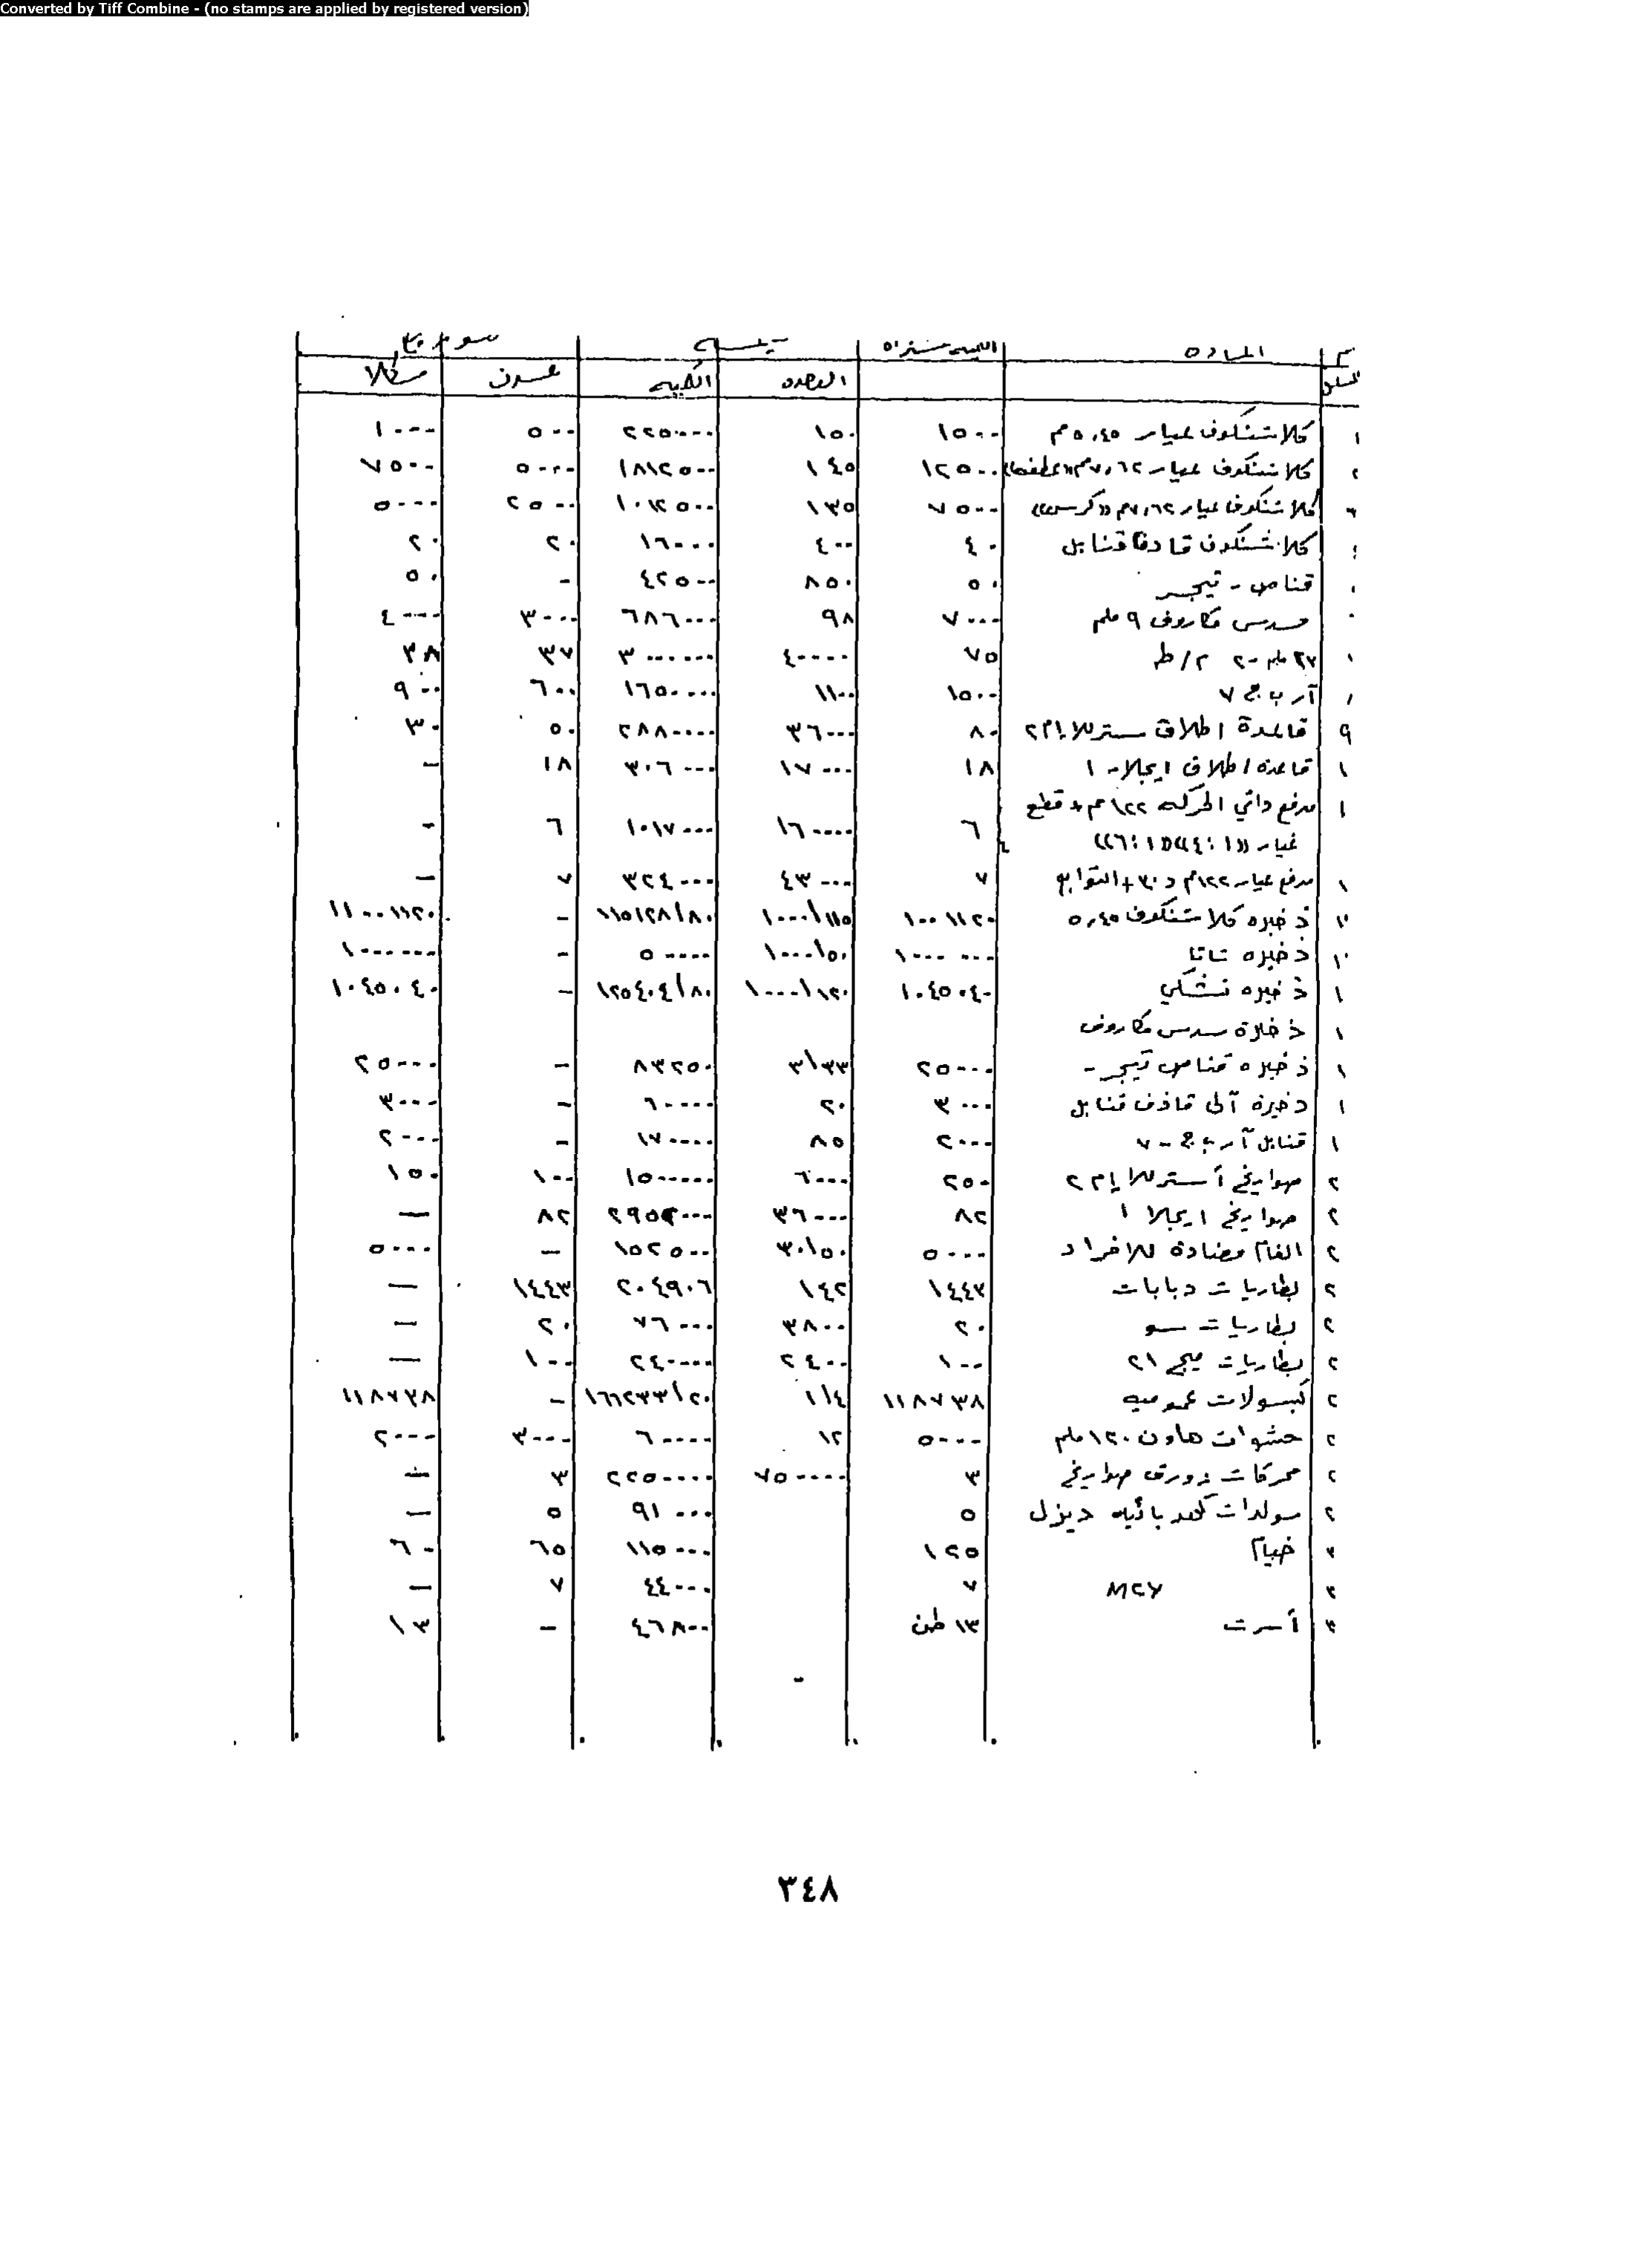 Converted by Tiff Combine - (no stamps are applied by registered version)
م المادة الكميه مشتراه قيمـــه توزيع
المسلسل الوحده الكليه عدن مكلا
١ كلاشنكوف عيار ٥,٤٥مم ١٥٠٠ ١٥٠ ٢٢٥٠٠٠ ٥٠٠ ١٠٠٠
٢ كلاشنكوف عيار ٧,٦٢مم ١٢٥٠٠ ١٤٥ ١٨١٢٥٠٠ ٥٠٠٠ ٧٥٠٠
٣ كلاشنكوف عيار ٧,٦٢م ٧٥٠٠ ١٣٥ ١٠١٢٥٠٠ ٢٥٠٠ ٥٠٠٠
كلاشنكوف قاذفا قنابل ٤٠ ٤٠٠ ١٦٠٠٠ ٢٠ ٢٠
قناص - تيجر ٥٠ ٨٥٠ ٤٢٥٠٠ - ٥٠
مسدس مكاروف ٩ ملم ٧٠٠٠ ٩٨ ٦٨٦٠٠٠ ٣٠٠٠ ٤٠٠٠
٢٣ ملم -٢ ٢/ط ٧٥ ٤٠٠٠٠ ٣٠٠٠٠٠٠ ٣٧ ٣٨
آر ب ج ٧ ١٥٠٠ ١١٠٠ ١٦٥٠٠٠٠ ٦٠٠ ٩٠٠
٩ قاعدة اطلاق ستريلا إم٢ ٨٠ ٣٦٠٠٠ ٢٨٨٠٠٠٠ ٥٠ ٣٠
١ قاعده اطلاق ايجلا-١ ١٨ ١٧٠٠٠ ٣٠٦٠٠٠ ١٨ -
١ مدفع ذاتي الحركه ١٢٢مم + قطع
غيار ((٦:١))((٤:١)) ٦ ١٦٠٠٠٠ ١٠١٧٠٠٠ ٦ -
١ مدفع عيار ١٢٢م د ٣٠ + التوابع ٧ ٤٣٠٠٠ ٣٢٤٠٠٠ ٧ -
١ ذخيره كلاشنكوف ٥,٤٥ ١٠٠١١٢٠ ١١٥/١٠٠٠ ١١٥١٢٨/٨٠ - ١١٠٠١١٢٠
١ ذخيره تاتا ١٠٠٠٠٠٠ ٥٠/١٠٠٠ ٥٠٠٠٠ - ١٠٠٠٠٠٠
١ ذخيره تشكي ١٠٤٥٠٤٠ ١٢٠/١٠٠٠ ١٢٥٤٠٤/٨٠ - ١٠٤٥٠٤٠
١ ذخيرة مسدس مكاروف
١ ذخيره قناص تيجر - ٢٥٠٠٠ ٣/٣٣ ٨٣٢٥٠ - ٢٥٠٠٠
١ ذخيرة آلى قاذف قنابل ٣٠٠٠ ٢٠ ٦٠٠٠٠ - ٣٠٠٠
١ قنابل آر ب ج - ٧ ٢٠٠٠ ٨٥ ١٧٠٠٠٠ - ٢٠٠٠
٢ صواريخ أستريلا إم٢ ٢٥٠ ٦٠٠٠ ١٥٠٠٠٠٠ ١٠٠ ١٥٠
٢ صواريخ ايجلا ١ ٨٢ ٣٦٠٠٠ ٢٩٥٢٠٠٠ ٨٢ -
٢ الغام مضادة للافراد ٥٠٠٠ ٣٠/٥٠ ١٥٢٥٠٠ - ٥٠٠٠
٢ بطاريات دبابات ١٤٤٣ ١٤٢ ٢٠٤٩٠٦ ١٤٤٣ -
٢ بطاريات سو ٢٠ ٣٨٠٠ ٧٦٠٠٠ ٢٠ -
٢ بطاريات ميج ٢١ ١٠٠ ٢٤٠٠ ٢٤٠٠٠٠ ١٠٠ -
٢ كبسولات عموميه ١١٨٧٣٨ ١/٤ ١٦٦٢٣٣/٢٠ - ١١٨٧٣٨
٢ حشوات هاون ١٢٠ملم ٥٠٠٠ ١٢ ٦٠٠٠٠ ٣٠٠٠ ٢٠٠٠
٢ محركات زورق صواريخ ٣ ٧٥٠٠٠٠ ٢٢٥٠٠٠٠ ٣ -
٢ مولدات كهربائيه ديزل ٥ ٩١٠٠٠ ٥ -
٣ خيام ١٢٥ ١١٥٠٠٠ ٦٥ ٦٠
٣ M٢٧ ٧ ٤٤٠٠٠ ٧ -
٣ أسرت ١٣ طن ٤٦٨٠٠ - ١٣
٣٤٨